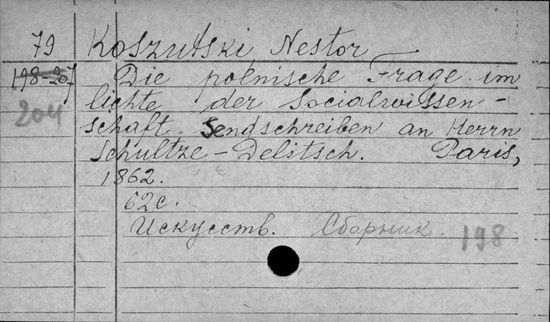 79 Koszutski Nestor
198-207 Die polnische Frage im
204 lichte der Socialwissen-
schaft. Sendschreiben an Herrn
Schultze-Delitsch. Paris,
1862.
62c.
Искусств. Сборник. 198